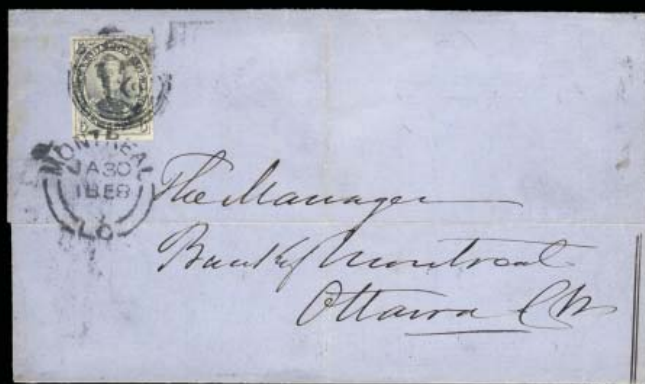 MONTREAL
JA 30
18E8
L.C
The Manager
Bank of Montreal
Ottawa CW